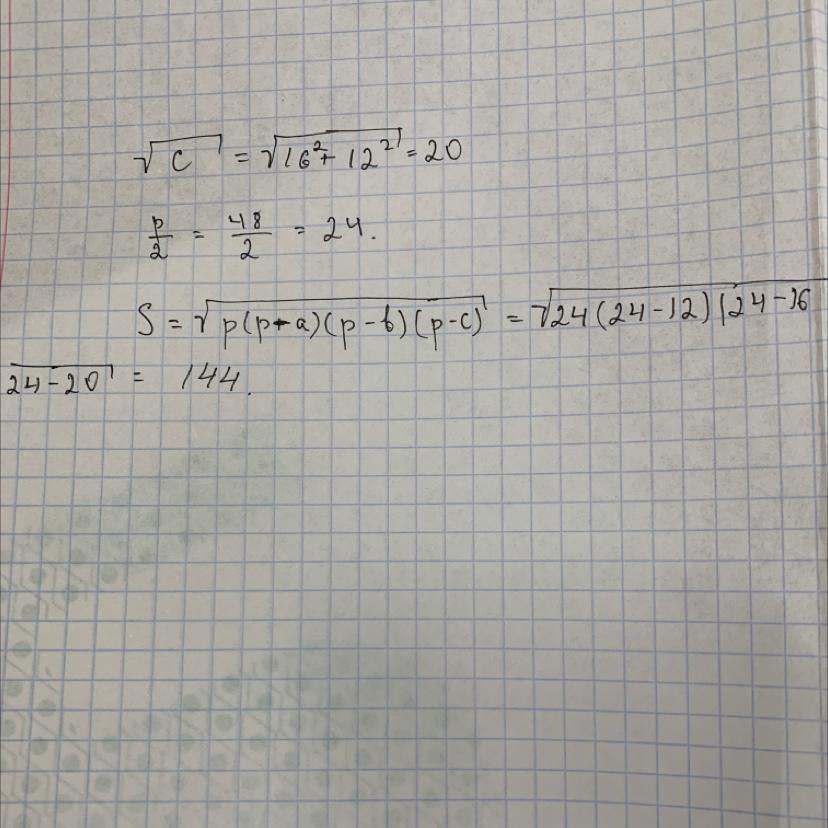 √c = √16²+12² = 20
p/2 = 48/2 = 24.
S = √p(p-a)(p-b)(p-c) = √24(24-12)(24-16
24-20 = 144.